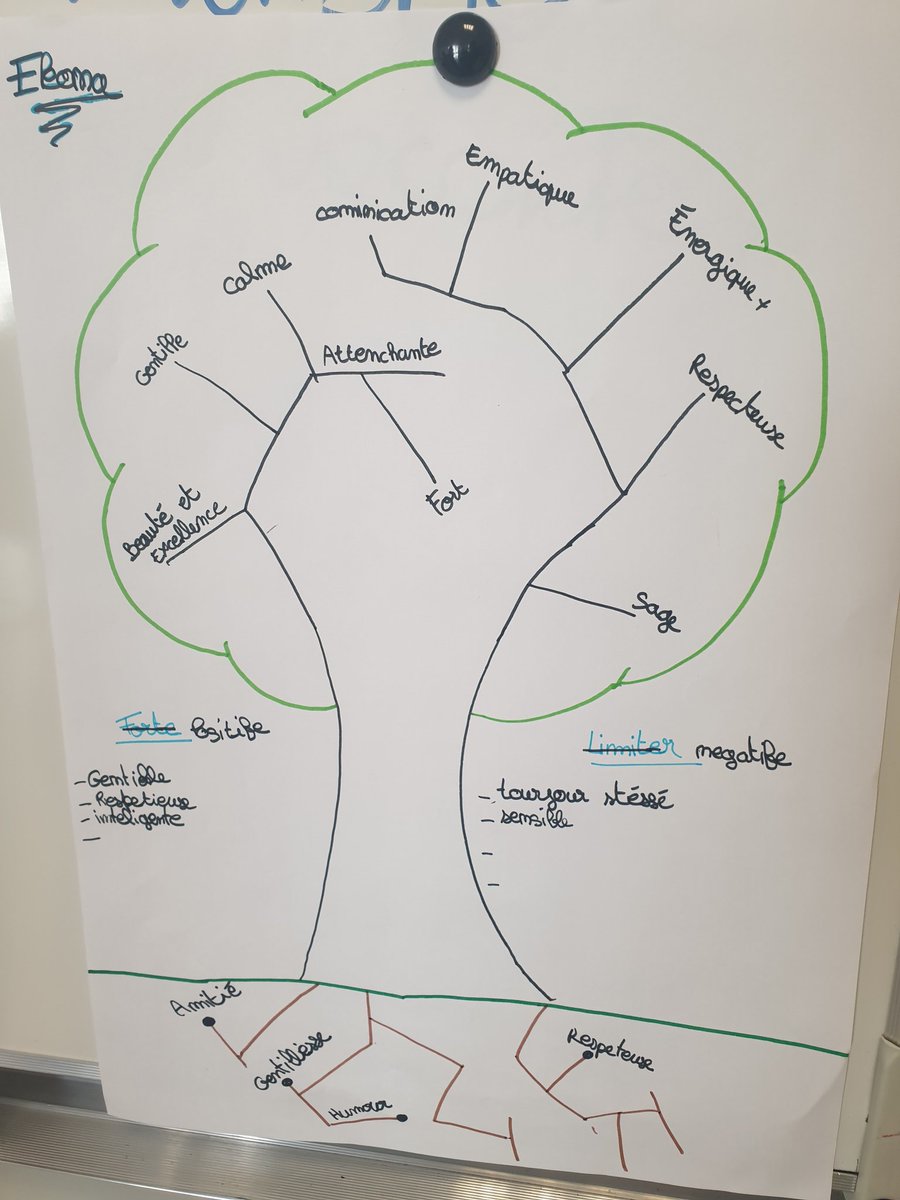 Empatique
cominication
Énergique +
Calme
Attenchante
Gentille
Respecteuse
Fort
Beauté et
Excellence
Sage
Forte Positife
Limiter negatife
- Gentille
- Respetieuse
- inteligente
-
- tourjour stéssé
- sensible
-
-
Amitié
Gentillesse
Respeteuse
Humour